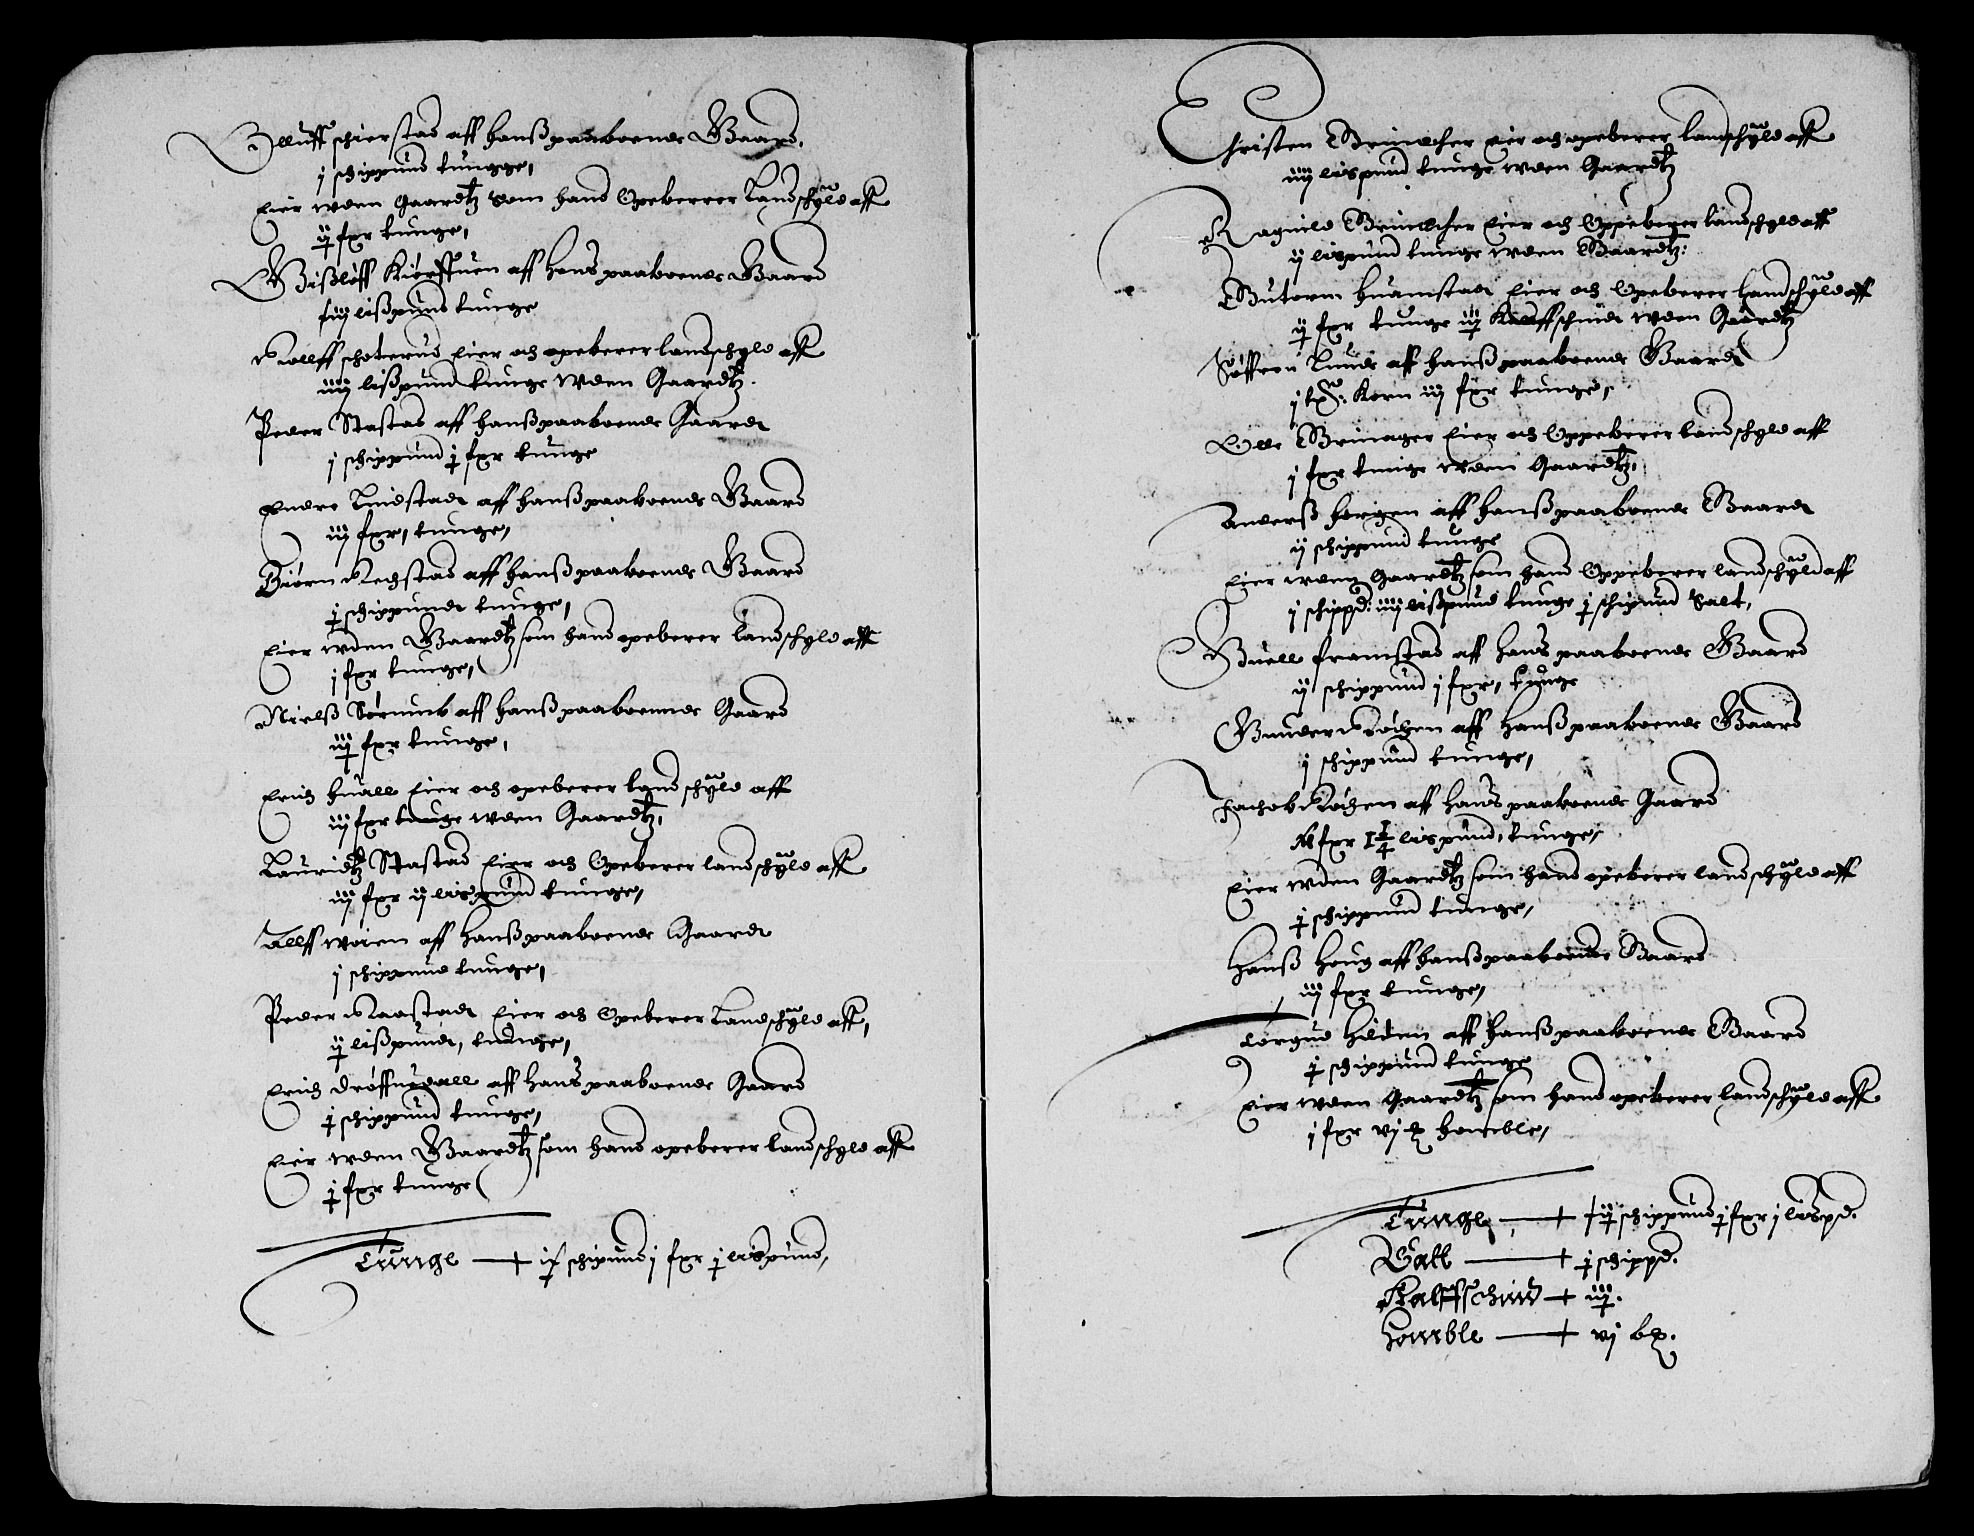 Oluff schierstad aff hanß paaboende Gaard,
j schippund tungge,
Eier uden Gaardtz som hand Opeberrer Landschyld aff
ij fxr tunge,
Gißloff Kiørffuen aff hans paaboende Gaard
fiij lißpund tunge
Rolff schoterud Eier och opeberer landschyld aff
iiij lißpund tunge uden Gaardtz.
Peder Stastad aff hanß paaboende Gaardt
j schippund j fxr tunge
Endre Lundstadt aff hanß paaboende Gaard
iij fxr, tunge,
Biørn Rechstad aff hanß paaboende Gaard
j schippundt tunge,
Eier uden Gaardtz som hand opeberer landschyld aff
j fxr tunge,
Nielß Sørumb aff hanß paaboennde Gaard
iij fxr tunge,
Erich huall Eier och opeberer land schyld aff
iij fxr tunge uden Gaardtz,
Lauridtz Stastad Eier och Opeberer landschyld aff
iij fxr ij lispund tunge,
Alff woien aff hanß paaboende Gaardt
j schippund tunge,
Peder Raastadt Eier och Opeberer Landschyld aff,
ij lißpundt, tunge,
Erich drøffuedall aff hans paaboende Gaard
j schippund tunge,
Eier uden Gaardtz som hand opeberer landschyld aff
j fxr tunge
Tunge — if schipund j fxr j lispund,
Christen Brinicher eier och opeberer landschyld aff
iiij lispund tunge uden Gaardtz
Ragnild Brinicher Eier och Oppeberer landschyld aff
ij lispund tunge uden Gaardtz:
Gutorm huamstadt Eier och Opeberer landschyld aff
ij fxr tunge iij Kalffschind uden Gaardtz
Søffren Lunde aff hanß paaboende Gaardt
j tx: Korn iij fxr tunge,
Olle Brinager Eier och Oppeberer landschyld aff
j fxr tunge uden Gaardtz,
Anderß horgen aff hanß paaboende Gaardt
ij schippund tunge
Eier uden Gaardtz som hand Oppeberer landschyld aff
j schippd: iiij lißpund tunge j schipund Salt,
Guell framstad aff hans paaboende Gaard
ij schippund j fxr, tunge
Gunder Røchen aff hanß paaboende Gaard
j schippund tunge,
Jachob Røchen aff hans paaboende Gaard
fxr 1 1/4 lispund, tunge,
Eier uden Gaardtz som hand opeberer landschyld aff
j schippund tunge,
Hanß houg aff hanß paaboende Gaard
iij fxr tunge,
Torgud hilden aff hanß paaboende Gaard
j schippund tunge
Eier uden Gaardtz som hand opeberer landschyld aff
j fxr vj homble,
Tunge — schippund j fxr j lispd.
Salt — j schippd.
Kalffschind — iij.
Homble — vj